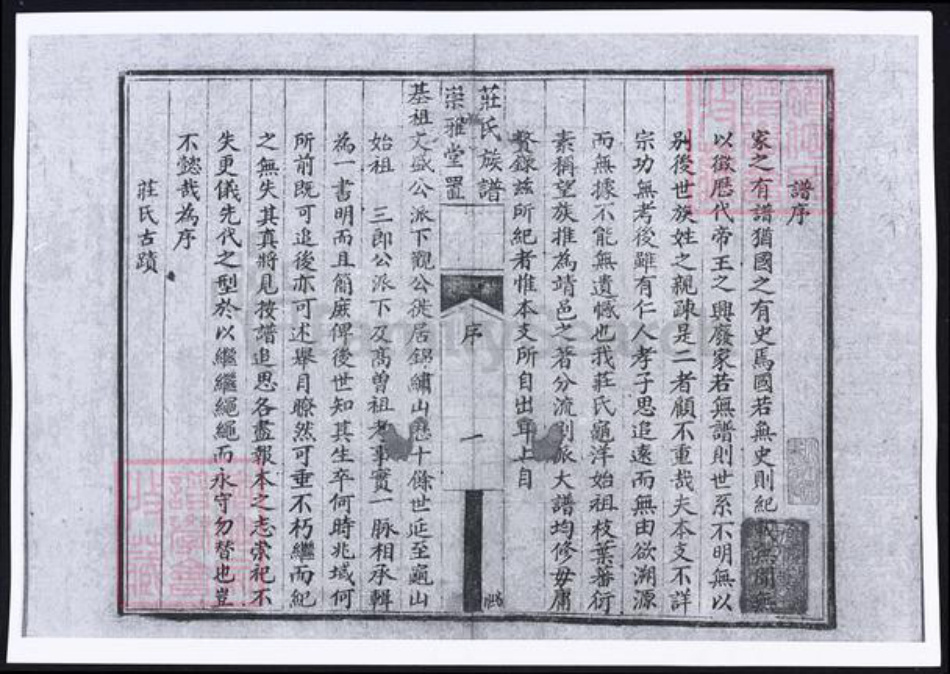 譜序
家之有譜猶國之有史焉國若無史則紀載無聞無
以徵歷代帝王之興廢家若無譜則世系不明無以
別後世族姓之親疎是二者顧不重哉夫本支不詳
宗功無考後雖有仁人孝子思追遠而無由欲溯源
而無據不能無遺憾也我莊氏龜洋始祖枝葉蕃衍
素稱望族推為靖邑之著分流別派大譜均修毋庸
贅錄茲所紀者惟本支所自出耳上自
莊氏族譜
崇雅堂置
序
一
基祖文盛公派下觀公徙居錦繡山歷十餘世延至龜山
始祖 三郎公派下及高曾祖考事實一脉相承輯
為一書明而且簡庶俾後世知其生卒何時兆域何
所前既可追後亦可述舉目瞭然可垂不朽繼而紀
之無失其真將見按譜追思各盡報本之志崇祀不
失更儀先代之型於以繼繼繩繩而永守勿替也豈
不懿哉為序
莊氏古蹟